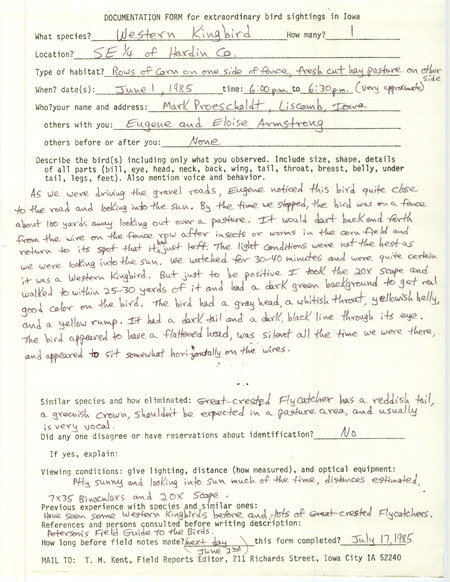 DOCUMENTATION FORM for extraordinary bird sightings in Iowa
What species? Western Kingbird How many? 1
Location? SE 1/4 of Hardin Co.
Type of habitat? Rows of corn on one side of fence, fresh cut hay pasture on other side
When? date(s): June 1, 1985 time: 6:00 p.m. to 6:30 p.m. (very approximate)
Who? your name and address: Mark Proescholdt, Liscomb, Iowa
others with you: Eugene and Eloise Armstrong
others before or after you: None
Describe the bird(s) including only what you observed. Include size, shape, details
of all parts (bill, eye, head, neck, back, wing, tail, throat, breast, belly, under
tail, legs, feet). Also mention voice and behavior.
As we were driving the gravel roads, Eugene noticed this bird quite close
to the road and looking into the sun. By the time we stopped, the bird was on a fence
about 100 yards away looking out over a pasture. It would dart back and forth
from the wire on the fence row after insects or worms in the corn field and
return to its spot that it had just left. The light conditions were not the best as
we were looking into the sun. We watched for 30-40 minutes and were quite certain
it was a Western Kingbird. But just to be positive I took the 20X scope and
walked to within 25-30 yards of it and had a dark green background to get real
good color on the bird. The bird had a gray head, a whitish throat, yellowish belly,
and a yellow rump. It had a dark tail and a dark, black line through its eye.
The bird appeared to have a flattened head, was silent all the time we were there,
and appeared to sit somewhat horizontally on the wires.
Similar species and how eliminated: Great-crested Flycatcher has a reddish tail,
a greenish crown, shouldn't be expected in a pasture area, and usually
is very vocal.
Did any one disagree or have reservations about identification? No
If yes, explain:
Viewing conditions: give lighting, distance (how measured), and optical equipment:
Ptly sunny and looking into sun much of the time, distances estimated,
7X35 Binoculars and 20X Scope.
Previous experience with species and similar ones:
Have seen some Western Kingbirds before and lots of Great-crested Flycatchers.
References and persons consulted before writing description:
Peterson's Field Guide to the Birds.
How long before field notes made? next day this form completed? July 17, 1985
(June 2nd)
MAIL TO: T. H. Kent, Field Reports Editor, 211 Richards Street, Iowa City IA 52240